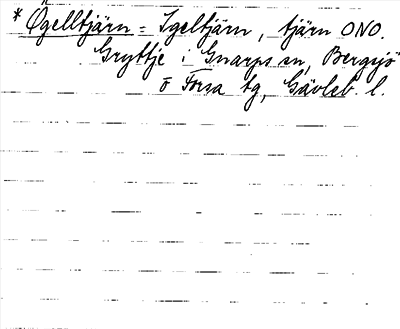 * Ögelltjärn = Igeltjärn, tjärn ONO.
Gryttje i Gnarps sn, Bergsjö
o Forsa tg, Gävleb. l.